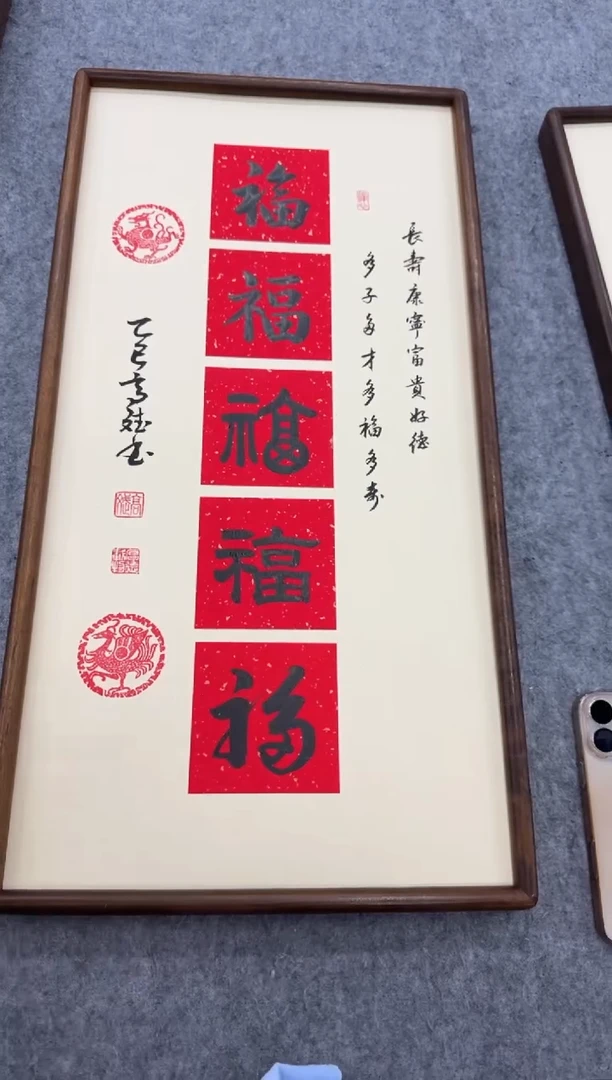 長壽康寧富貴好德
多子多才多福多壽
福
福
福
福
福
乙巳高斌书